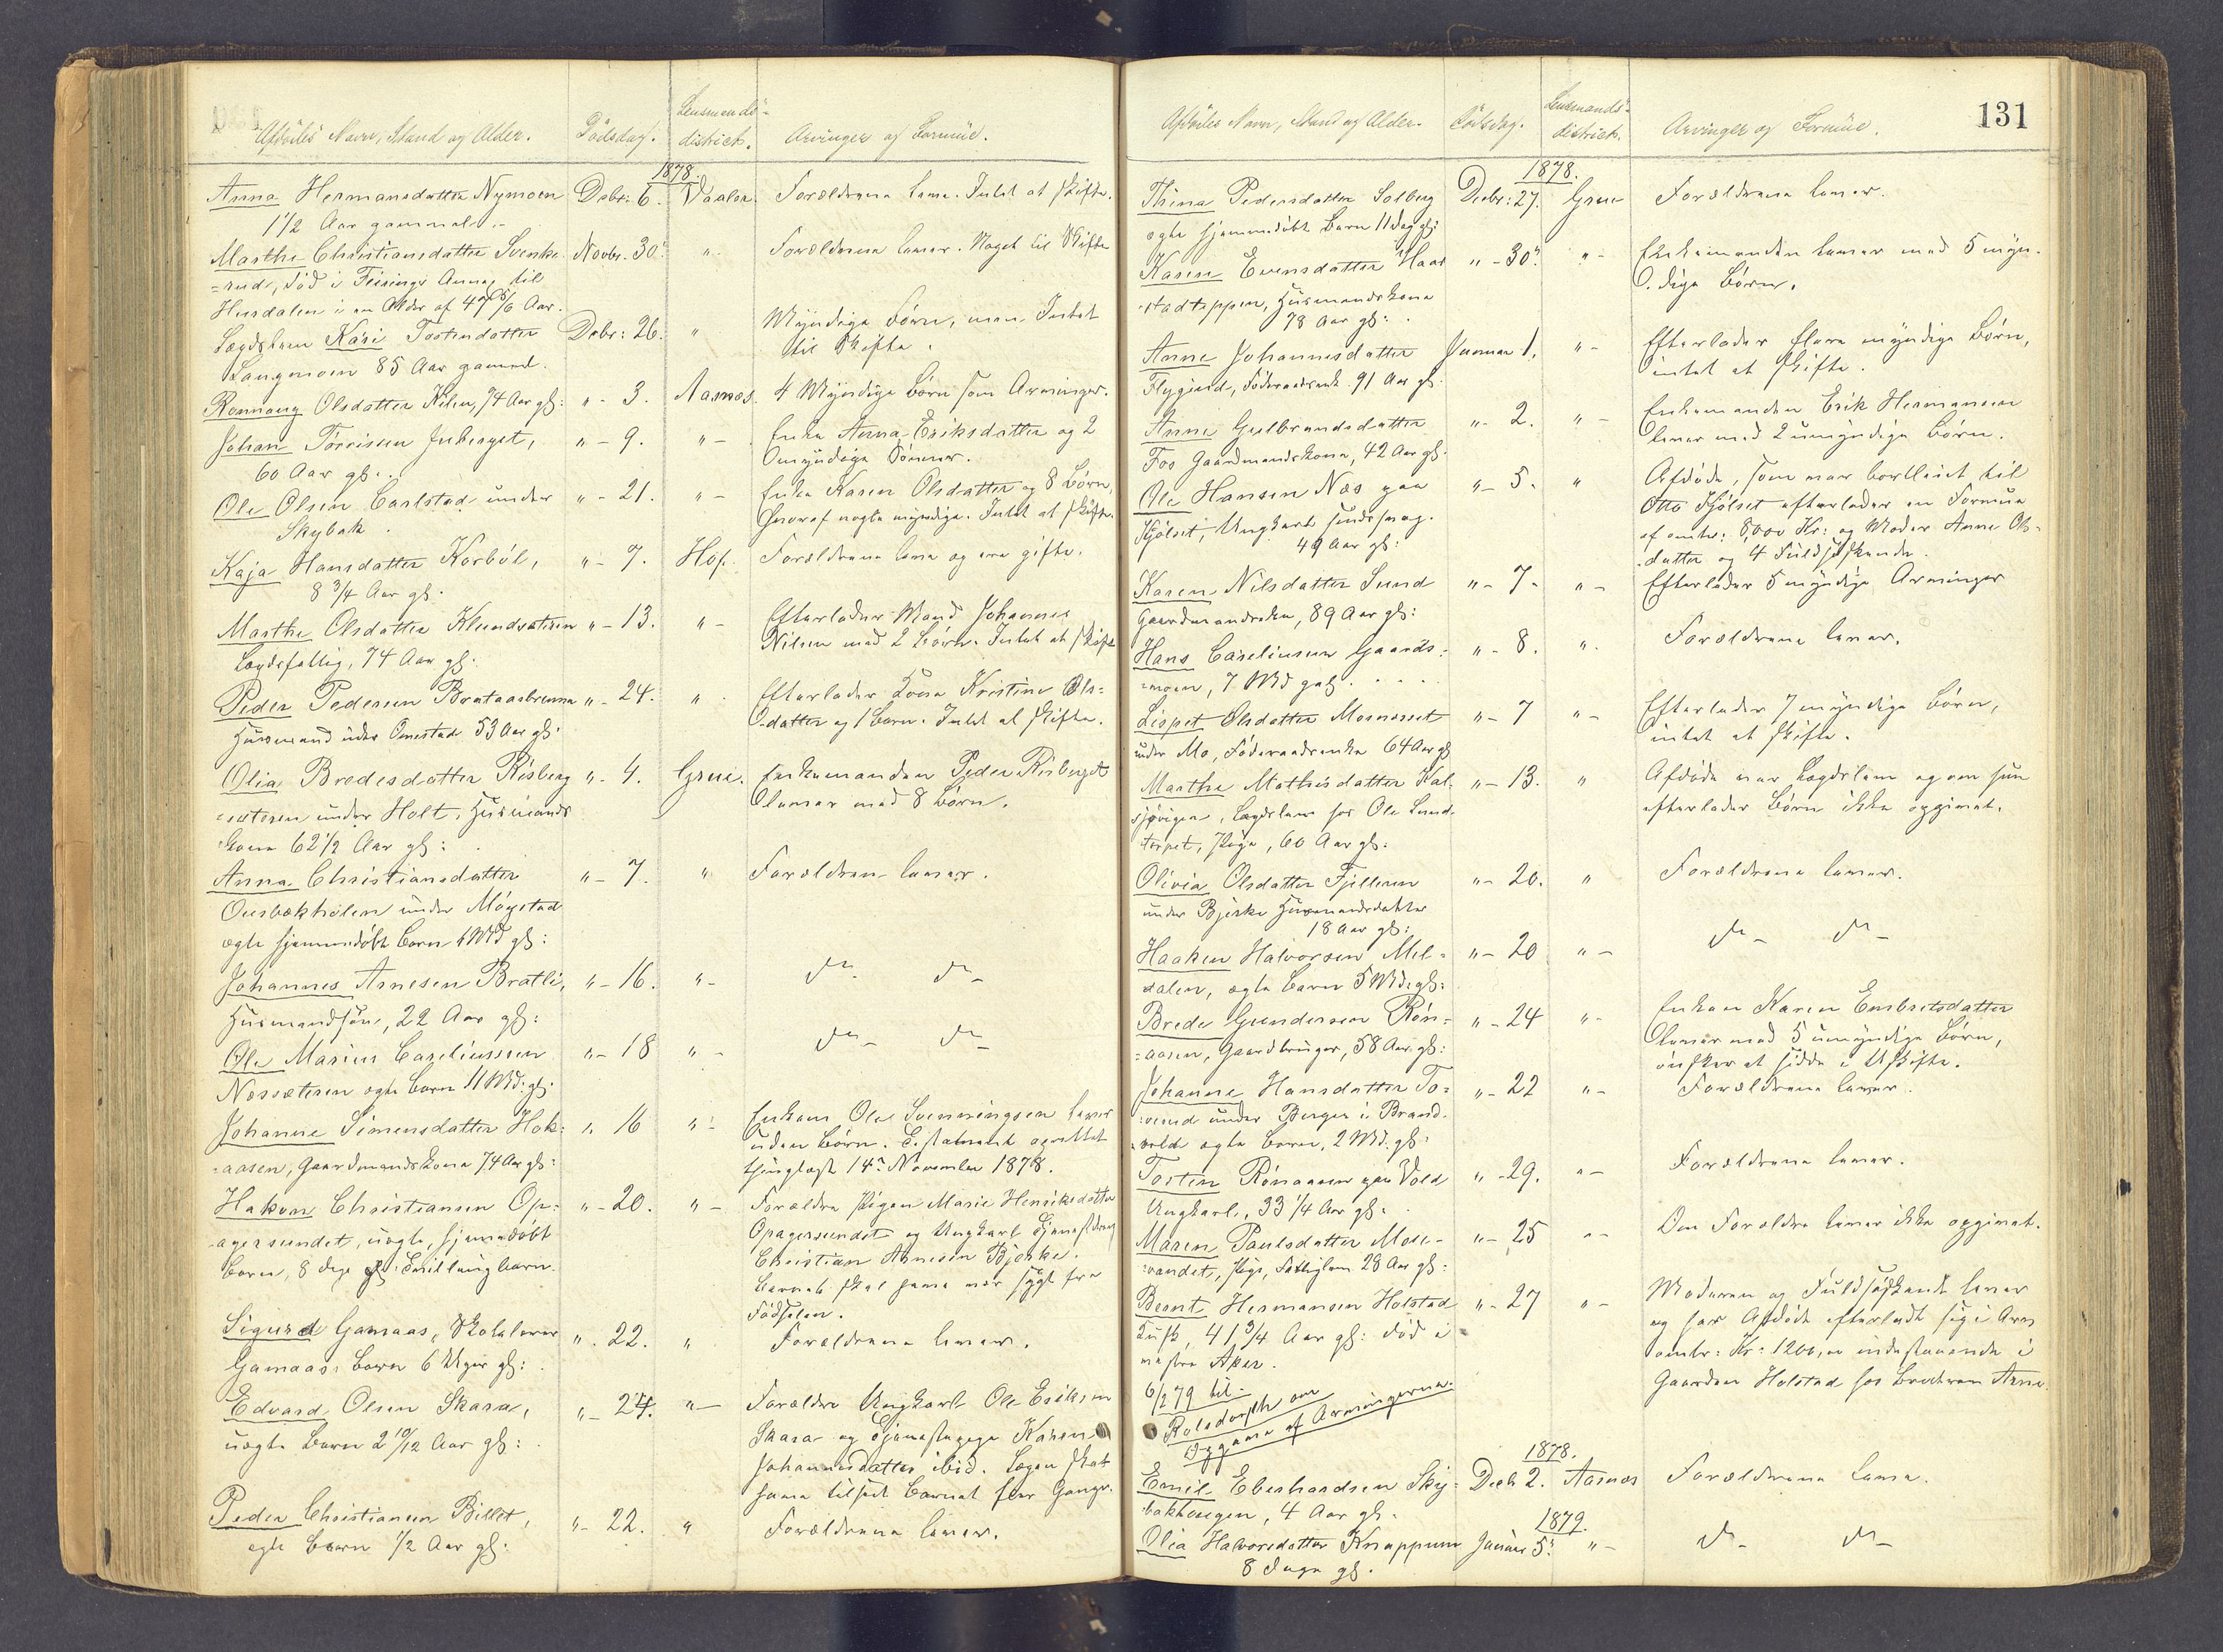 Afdødes Navn, Stand og Alder. Dødsdag. Lensmands-
district. Arvinger og Formue.
1878.
Anna Hermansdatter Nymoen Debr: 6. Vaaler. Forældrene leve. Intet at skifte.
1 1/2 Aar gammel.-
Marthe Christiansdatter Svenke- Novbr. 30. " Forældrene lever. Noget til Skifte
=rud, død i
Husdalen i en Alder af 47 5/6 Aar.
Lægdslem Kari Tostensdatter Debr: 26. " Myndige Børn, men Intet
til Skifte.
Langmoen 85 Aar gammel.
Rønnaug Olsdatter Kilen, 74 Aar gl: " - 3. Aasnes. 4 Myndige Børn som Arvinger.
Johan Tørrissen Inberget, " - 9. " - Enke Anna Eriksdatter og 2
Umyndige Sønner.
60 Aar gl:.
Ole Olsen Carlstad under " - 21. " - Enke Karen Olsdatter og 8 Børn,
hvoraf nogle myndige. Intet at skifte.
Skybak.
Kaja Hansdatter Korbøl, " - 7. Hof. Forældrene leve og ere gifte.
8 3/4 Aar gl.
Marthe Olsdatter Klundsæteren " - 13. " - Efterlader Mand Johannes
Nilsen med 2 Børn. Intet at skifte
Lægdsfattig, 74 Aar gl:.
Peder Pedersen Brataasbrenna " - 24. " Efterlader Kone Kristine Ols=
datter og 1 Barn. Intet at skifte.
Husmand under Omestad 53 Aar gl.
Olia Bredesdatter Risberg " - 4. Grue. Enkemanden Peder Risberget
lever med 8 Børn.
=sæteren under Holt, Husmands
kone 62 1/2 Aar gl:
Anna Christiansdatter " - 7. " Forældrene lever.
Ousbækholen under Møystad
ægte hjemmedøbt Barn 4 Md gl:
Johannes Arnesen Bratli, " - 16. " - do - do -
Husmandssøn, 22 Aar gl:
Ole Marius Caseliussen " - 18 " - do - do -
Næssæteren ægte Barn 11 Md: gl.
Johanne Simensdatter Hok= " 16 " - Enkem Ole Svenningsen lever
uden Børn. Testament oprettet
thinglæst 14de November 1878.
=aasen, Gaardmandskone 74 Aar gl:
Hakon Christiansen Op= " - 20. " - Forældre Pigen Marie Henriksdatter
Opagersundet og Ungkarl Tjenestdreng
Christian Arnesen Bjerke.
Barnet skal have vær sygt fra
Fødselen.
=agersundet, uægte, hjemmedøbt
Barn, 8 dage gl: Tvillingbarn.
Sigurd Gamaas, Skolelærer " - 22. " Forældrene lever.
Gamaas's Barn 6 Uger gl:
Edvard Olsen Skara, " - 24. " - Forældre Ungkarl Ole Eriksen
Skara og Tjenestepige Karen
Johannesdatter ibid. Lægen skal
have tilseet Barnet flere Gange.
uægte Barn 2 10/12 Aar gl:
Peder Christiansen Billet, " - 22. " Forældrene lever.
ægte Barn 1/2 Aar gl:
131
Afdødes Navn, Stand og Alder. Dødsdag. Lensmands-
district. Arvinger og Formue.
1878.
Thina Pedersdatter Solberg Decbr: 27. Grue Forældrene lever.
ægte hjemmedøbt Barn 11 Dag gl:
Karen Evensdatter Haar " - 30. " - Enkemanden lever med 5 myn-
dige Børn.
=stadeppen, Husmandskone
78 Aar gl:
Anne Johannesdatter Januar 1. " - Efterlader flere myndige Børn,
intet at skifte.
Flygind, Føderaadsenk. 91 Aar gl.
Anne Gulbrandsdatter " - 2. " - Enkemanden Erik Hermansen
lever med 2 umyndige Børn.
Fos Gaardmandskone, 42 Aar gl.
Ole Hansen Næs paa " - 5. " Afdøde, som var bortleiet til
Otto Kjølset efterlader en Formue
af omtr: 8,000 Kr: og Moder Anne Ols=
datter og 4 Fuldsøskende.
Kjølset, Ungkarl sindssvag.
49 Aar gl:
Karen Nilsdatter Lund " - 7. " - Efterlader 5 myndige Arvinger
Gaardmandsenke, 89 Aar gl:
Hans Caseliussen Gaards= " - 8. " Forældrene lever.
=moen, 7 Md gl.
Lispet Olsdatter Mosnesset " - 7 " - Efterlader 7 myndige Børn,
intet at skifte.
under Mo, Føderaadsenke 64 Aar gl
Marthe Mathisdatter Kal- " - 13. " Afdøde var Lægdslem og om hun
efterlader Børn ikke opgivet.
sjøvigen, Lægdslem hos Ole Lund-
torpet, Pige, 60 Aar gl:
Olivia Olsdatter Fjelleren " - 20. " Forældrene lever.
under Bjerke Husmandsdatter
18 Aar gl:
Haaken Halvorsen Mel= " - 20 " - do - do -
dalen, ægte Barn 5 Md: gl:
Brede Gundersen Røn= " - 24 " - Enken Karen Embretsdatter
lever med 5 umyndige Børn,
ønsker at sidde i Uskifte.
=aasen, Gaardbruger, 58 Aar gl:
Johanne Hansdatter To= " - 22 " - Forældrene lever.
under Berger i Brand-
=vold ægte Barn, 2 Md. gl:
Tosten Rønaasen paa Vold " - 29. " - Forældrene lever.
Ungkarl, 33 1/4 Aar gl:
Maren Paulsdatter Mose- " - 25 " - Om Forældre lever ikke opgivet.
=vandet, Pige, Fattiglem 28 Aar gl:
Bernt Hermansen Holstad " - 27 " - Moderen og Fuldsøskende lever
og har Afdøde efterladt sig i Arv
omtr: Kr: 1200, indestaaende i
Gaarden Holstad hos Broderen Arne.
41 3/4 Aar gl: død i
vestre Aker.
6/2 79 til
Rolsdorph om
Opgave af Arvingerne.
1878.
Emil Eberhardsen Sky= Decb 2. Aasnæs Forældrene leve.
bakhaugen, 4 Aar gl.
1879.
Olia Halvorsdatter Knappum Januar 5. " - do - do -
8 Dage gl.